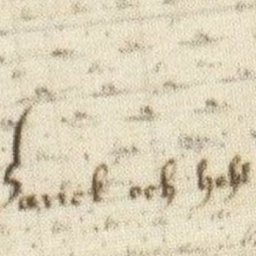 Barick och heht